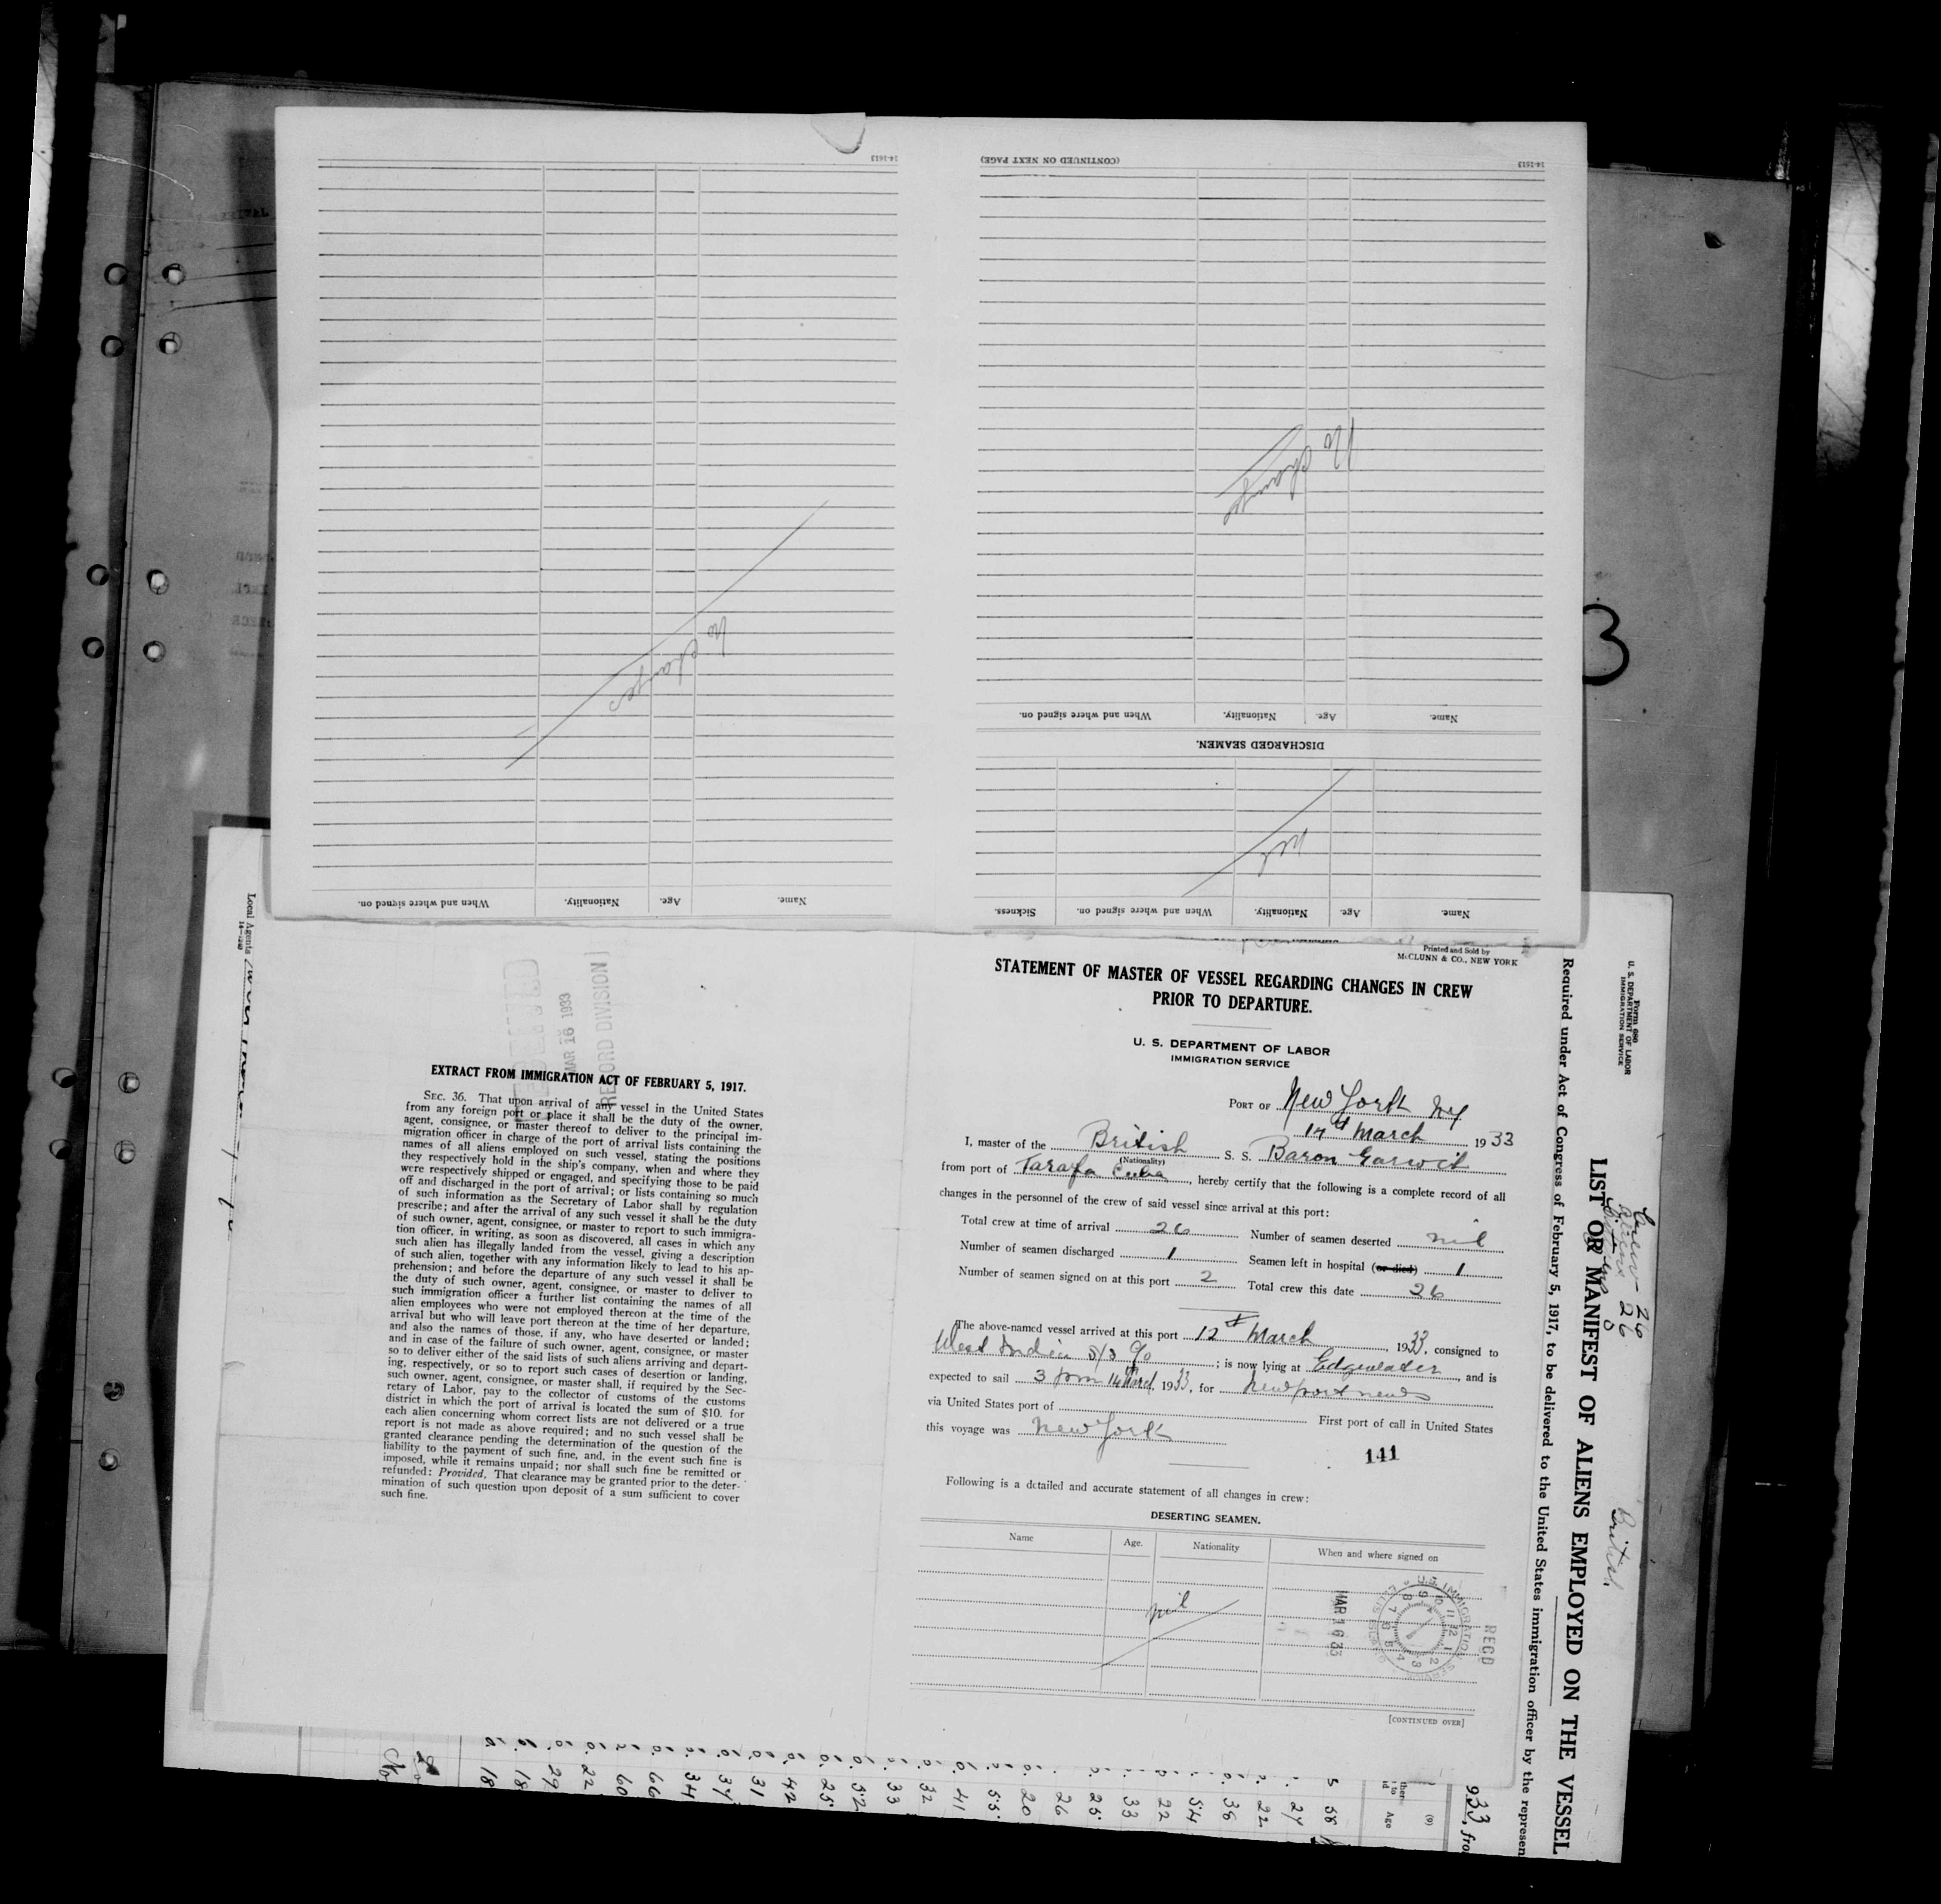 14-1613
(CONTINUED ON NEXT PAGE)
14-1613
No change
No changes
When and where signed on. Nationality. Age. Name.
DISCHARGED SEAMEN.
Nil
Sickness. When and where signed on. Nationality. Age. Name.
When and where signed on. Nationality. Age. Name.
Printed and Sold by
McCLUNN & CO., NEW YORK
STATEMENT OF MASTER OF VESSEL REGARDING CHANGES IN CREW
PRIOR TO DEPARTURE.
U. S. DEPARTMENT OF LABOR
IMMIGRATION SERVICE
PORT OF New York NY
14th March 1933
I, master of the British S. S. Baron Garioch
(Nationality)
from port of Tarafa Cuba, hereby certify that the following is a complete record of all
changes in the personnel of the crew of said vessel since arrival at this port:
Total crew at time of arrival 26 Number of seamen deserted nil
Number of seamen discharged 1 Seamen left in hospital (or died) 1
Number of seamen signed on at this port 2 Total crew this date 26
The above-named vessel arrived at this port 12th March, 1933, consigned to
West Indien S/S Co; is now lying at Edgewater, and is
expected to sail 3 pm 14 March, 1933, for Newport news
via United States port of First port of call in United States
this voyage was New York
141
Following is a detailed and accurate statement of all changes in crew:
DESERTING SEAMEN.
Name Age. Nationality When and where signed on
nil
MAR 16 33
U.S. IMMIGRATION SERVICE ELLIS ISLAND
RECD
[CONTINUED OVER]
MAR 16 1933
RECORD DIVISION
EXTRACT FROM IMMIGRATION ACT OF FEBRUARY 5, 1917.
SEC. 36. That upon arrival of any vessel in the United States
from any foreign port or place it shall be the duty of the owner,
agent, consignee, or master thereof to deliver to the principal im-
migration officer in charge of the port of arrival lists containing the
names of all aliens employed on such vessel, stating the positions
they respectively hold in the ship's company, when and where they
were respectively shipped or engaged, and specifying those to be paid
off and discharged in the port of arrival; or lists containing so much
of such information as the Secretary of Labor shall by regulation
prescribe; and after the arrival of any such vessel it shall be the duty
of such owner, agent, consignee, or master to report to such immigra-
tion officer, in writing, as soon as discovered, all cases in which any
such alien has illegally landed from the vessel, giving a description
of such alien, together with any information likely to lead to his ap-
prehension; and before the departure of any such vessel it shall be
the duty of such owner, agent, consignee, or master to deliver to
such immigration officer a further list containing the names of all
alien employees who were not employed thereon at the time of the
arrival but who will leave port thereon at the time of her departure,
and also the names of those, if any, who have deserted or landed;
and in case of the failure of such owner, agent, consignee, or master
so to deliver either of the said lists of such aliens arriving and depart-
ing, respectively, or so to report such cases of desertion or landing,
such owner, agent, consignee, or master shall, if required by the Sec-
retary of Labor, pay to the collector of customs of the customs
district in which the port of arrival is located the sum of $10. for
each alien concerning whom correct lists are not delivered or a true
report is not made as above required; and no such vessel shall be
granted clearance pending the determination of the question of the
liability to the payment of such fine, and, in the event such fine is
imposed, while it remains unpaid; nor shall such fine be remitted or
refunded: Provided, That clearance may be granted prior to the deter-
mination of such question upon deposit of a sum sufficient to cover
such fine.
Local Agents
Form 680
U. S. DEPARTMENT OF LABOR
IMMIGRATION SERVICE
Crew 26
26
0
British
LIST OR MANIFEST OF ALIENS EMPLOYED ON THE VESSEL
Required under Act of Congress of February 5, 1917, to be delivered to the United States immigration officer by the represen
933, fro
(9)
Age
58
27
22
36
54
22
33
25
26
20
55
41
32
33
52
25
42
31
37
34
66
60
22
29
18
18
3